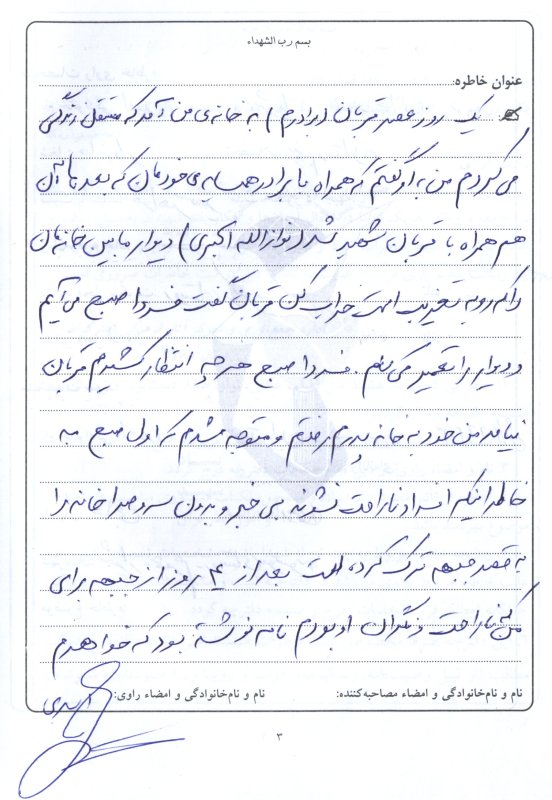 بسم رب الشهداء
عنوان خاطره:
یک روز عصر قربان (برادرم) به خانه ی من آمد که مستقل زندگی
می کردم من به او گفتم که همراه با برادر همسایه ی خودمان که بعدها آن
هم همراه با قربان شهید شد (نوازالله اکبری) دیوار ما بین خانه مان
را که رو به تخریب است خراب کن قربان گفت فردا صبح می آیم
و دیوار را تعمیر می کنم. فردا صبح هر چه انتظار کشیدم قربان
نیامد من خود به خانه پدرم رفتم و متوجه شدم که اول صبح به
خاطر اینکه افراد ناراحت نشوند بی خبر و بدون سر و صدا خانه را
به قصد جبهه ترک کرده است بعد از ۴ روز از جبهه برای
من که ناراحت و نگران او بودم نامه نوشته بود که خواهرم
نام و نام‌خانوادگی و امضاء مصاحبه‌کننده: نام و نام‌خانوادگی و امضاء راوی:
۳